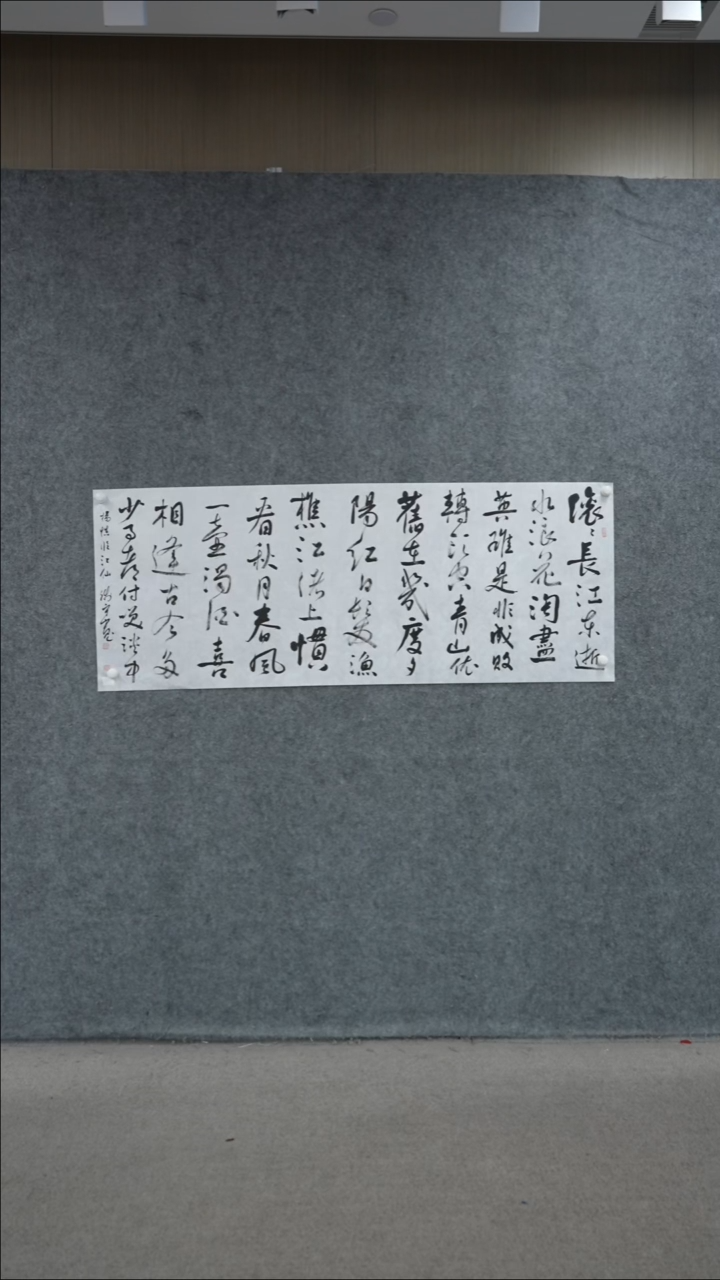 滚〻長江东逝
水浪花淘盡
英雄是非成敗
轉头空青山依
舊在幾度夕
陽红白髮漁
樵江渚上慣
看秋月春風
一壺濁酒喜
相逢古今多
少事都付笑談中
楊慎临江仙